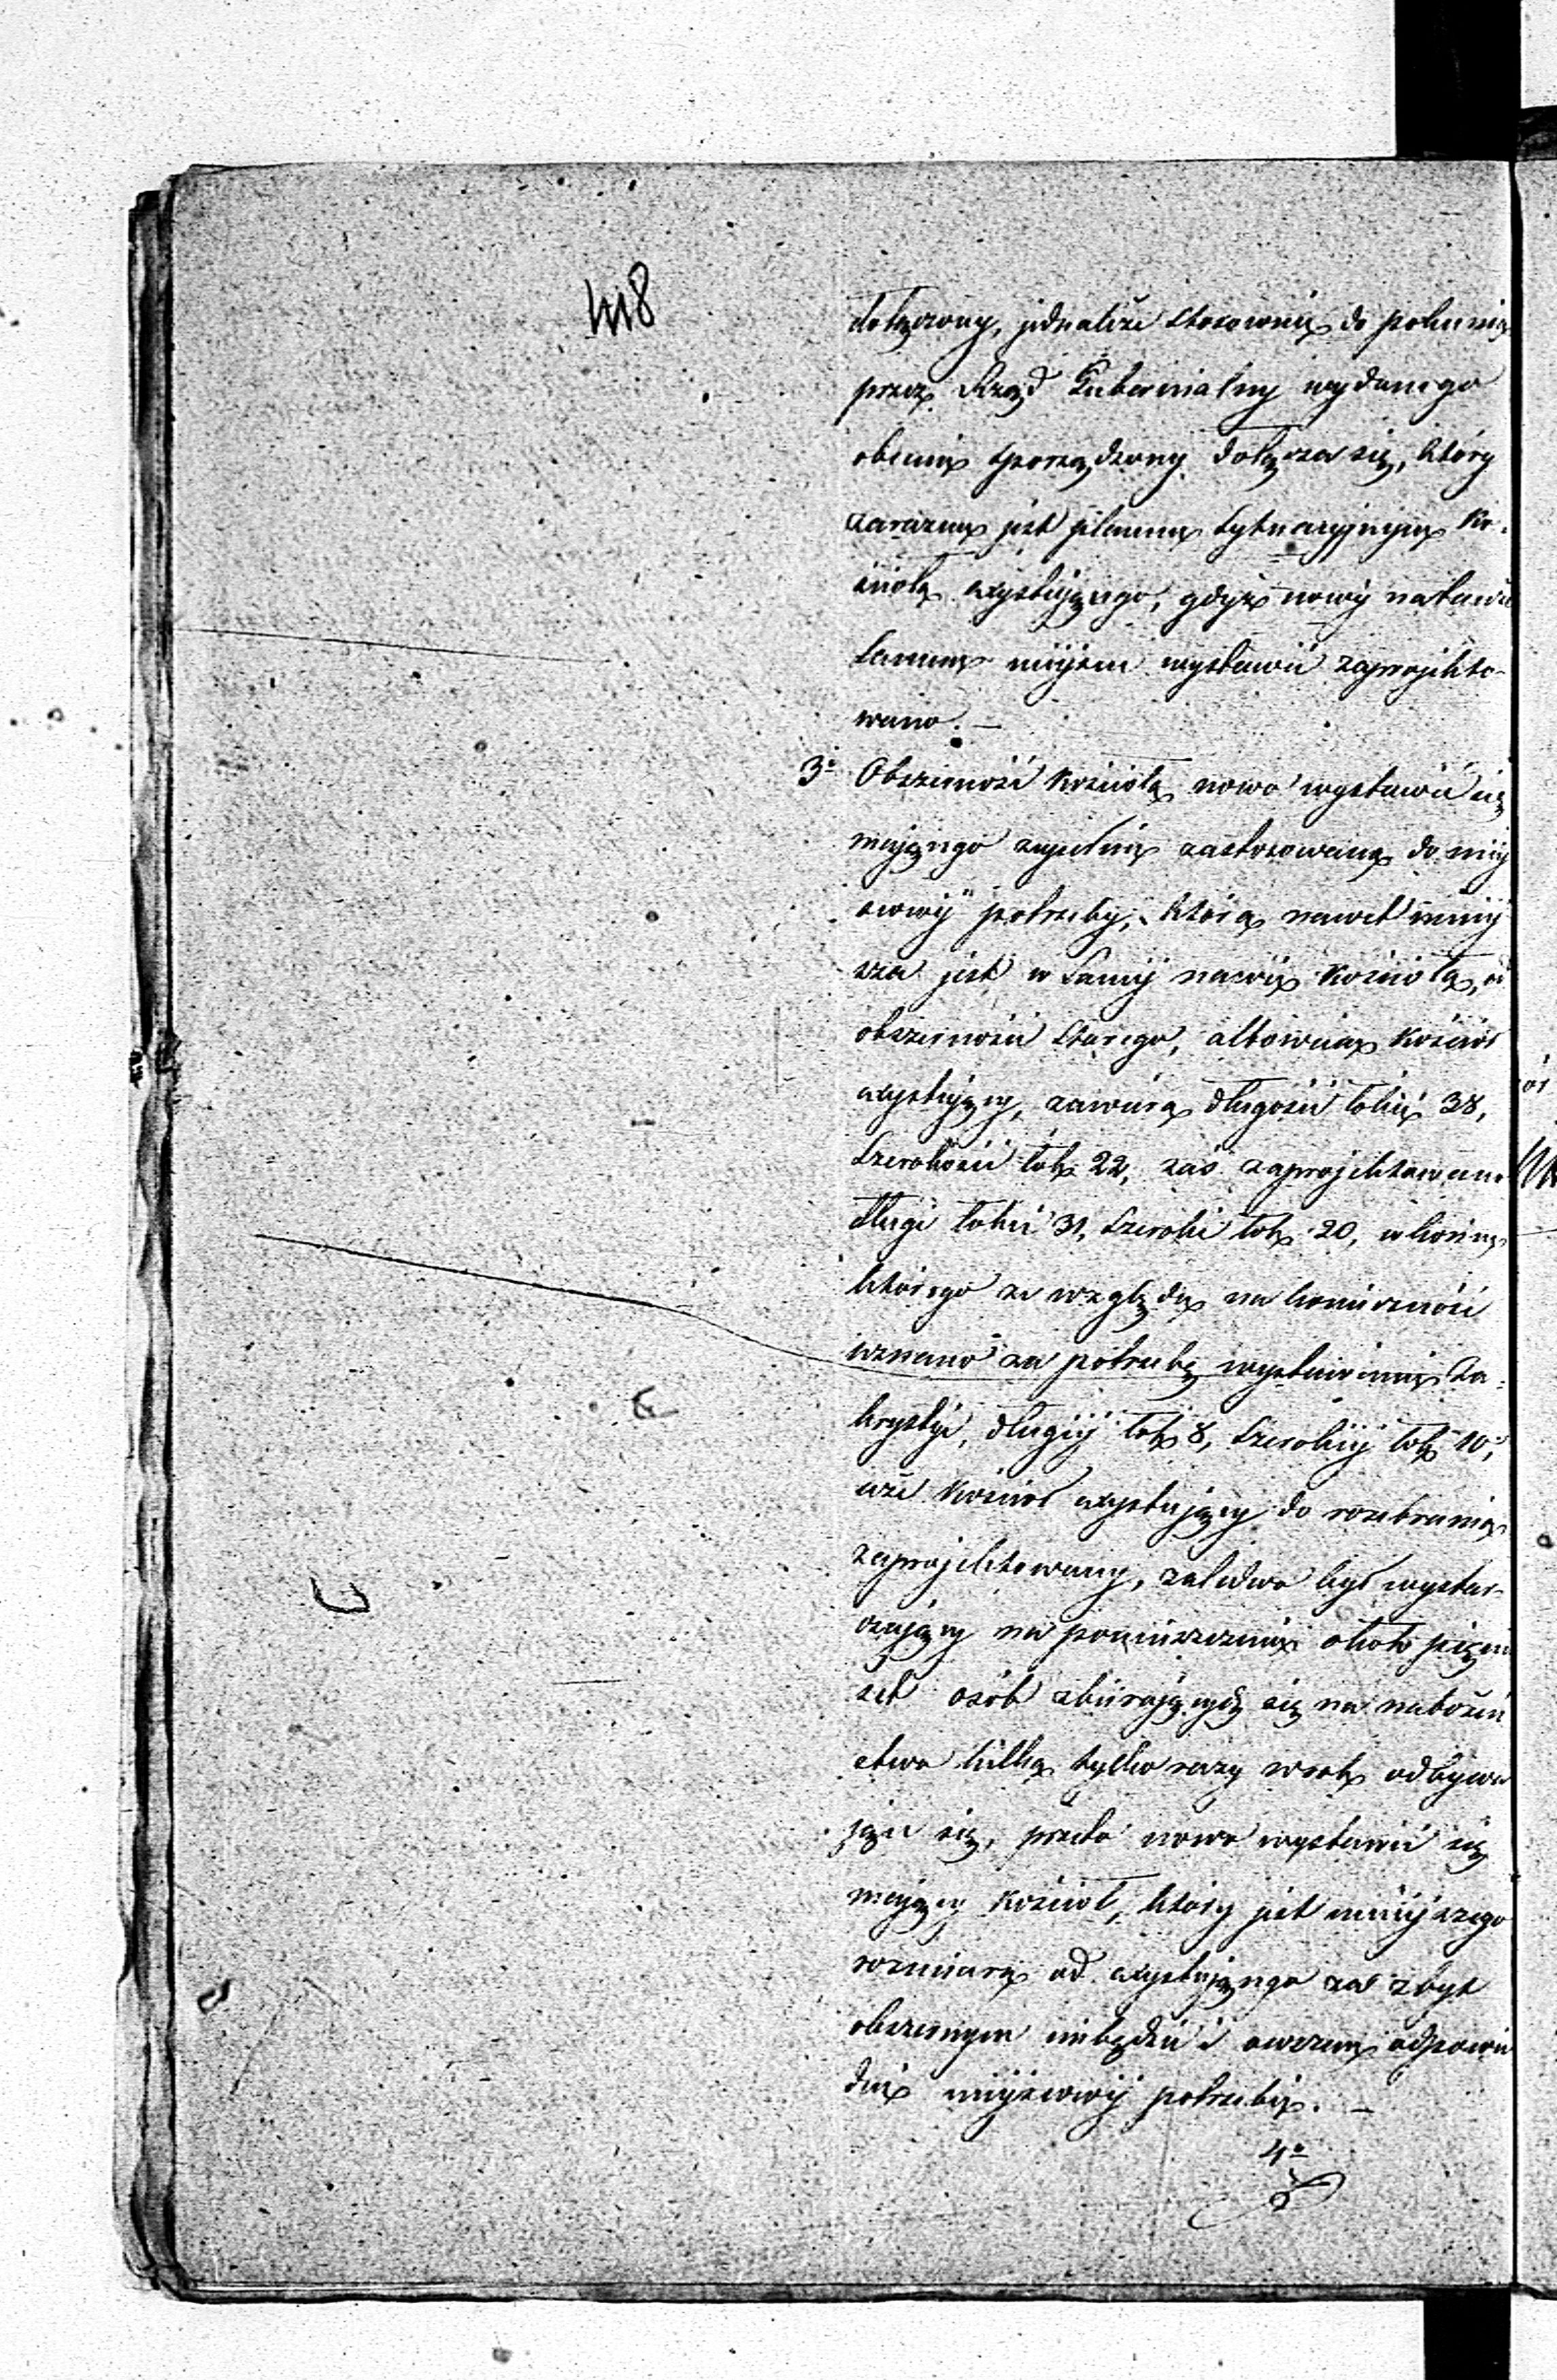 418
dołączony, jednakże stosownie do polecenia
przez Rząd Gubernialny wydanego
obecnie sporządzony dołącza się, który
zarazem jest planem sytuacyjnym Ko-
ścioła exystującego, gdyż nowy na tem że
samem miejscu wystawić zaprojekto-
wano. —
3o Obszerność Kościoła nowo wystawić się
mającego zupełnie zastosowana do miej
scowej potrzeby, która nawet mniej
sza jest w samej nawie Kościoła, od
obszerności starego, albowiem Kościół
exystujący, zawiera długości łokci 38,
szerokości łok: 22, zaś zaprojektowany
długi łokci 31, szeroki łok: 20, w końcu
którego ze względu na konieczność
uznano za potrzebę wystawienie Za-
krystyi, długiej łok: 8, szerokiej łok: 10;
a że Kościół exystujący do rozebrania
zaprojektowany, zaledwo był wystar-
czający na pomieszczenie około pięciu
set osób zbierających się na nabożeń
stwo kilka tylko razy w rok odbywa
jące się, przeto nowo wystawić się
mający Kościół, który jest mniejszego
rozmiaru od exystującego za zbyt
obszernym niebędzie i owszem odpowie
dni miejscowej potrzebie. —
4o